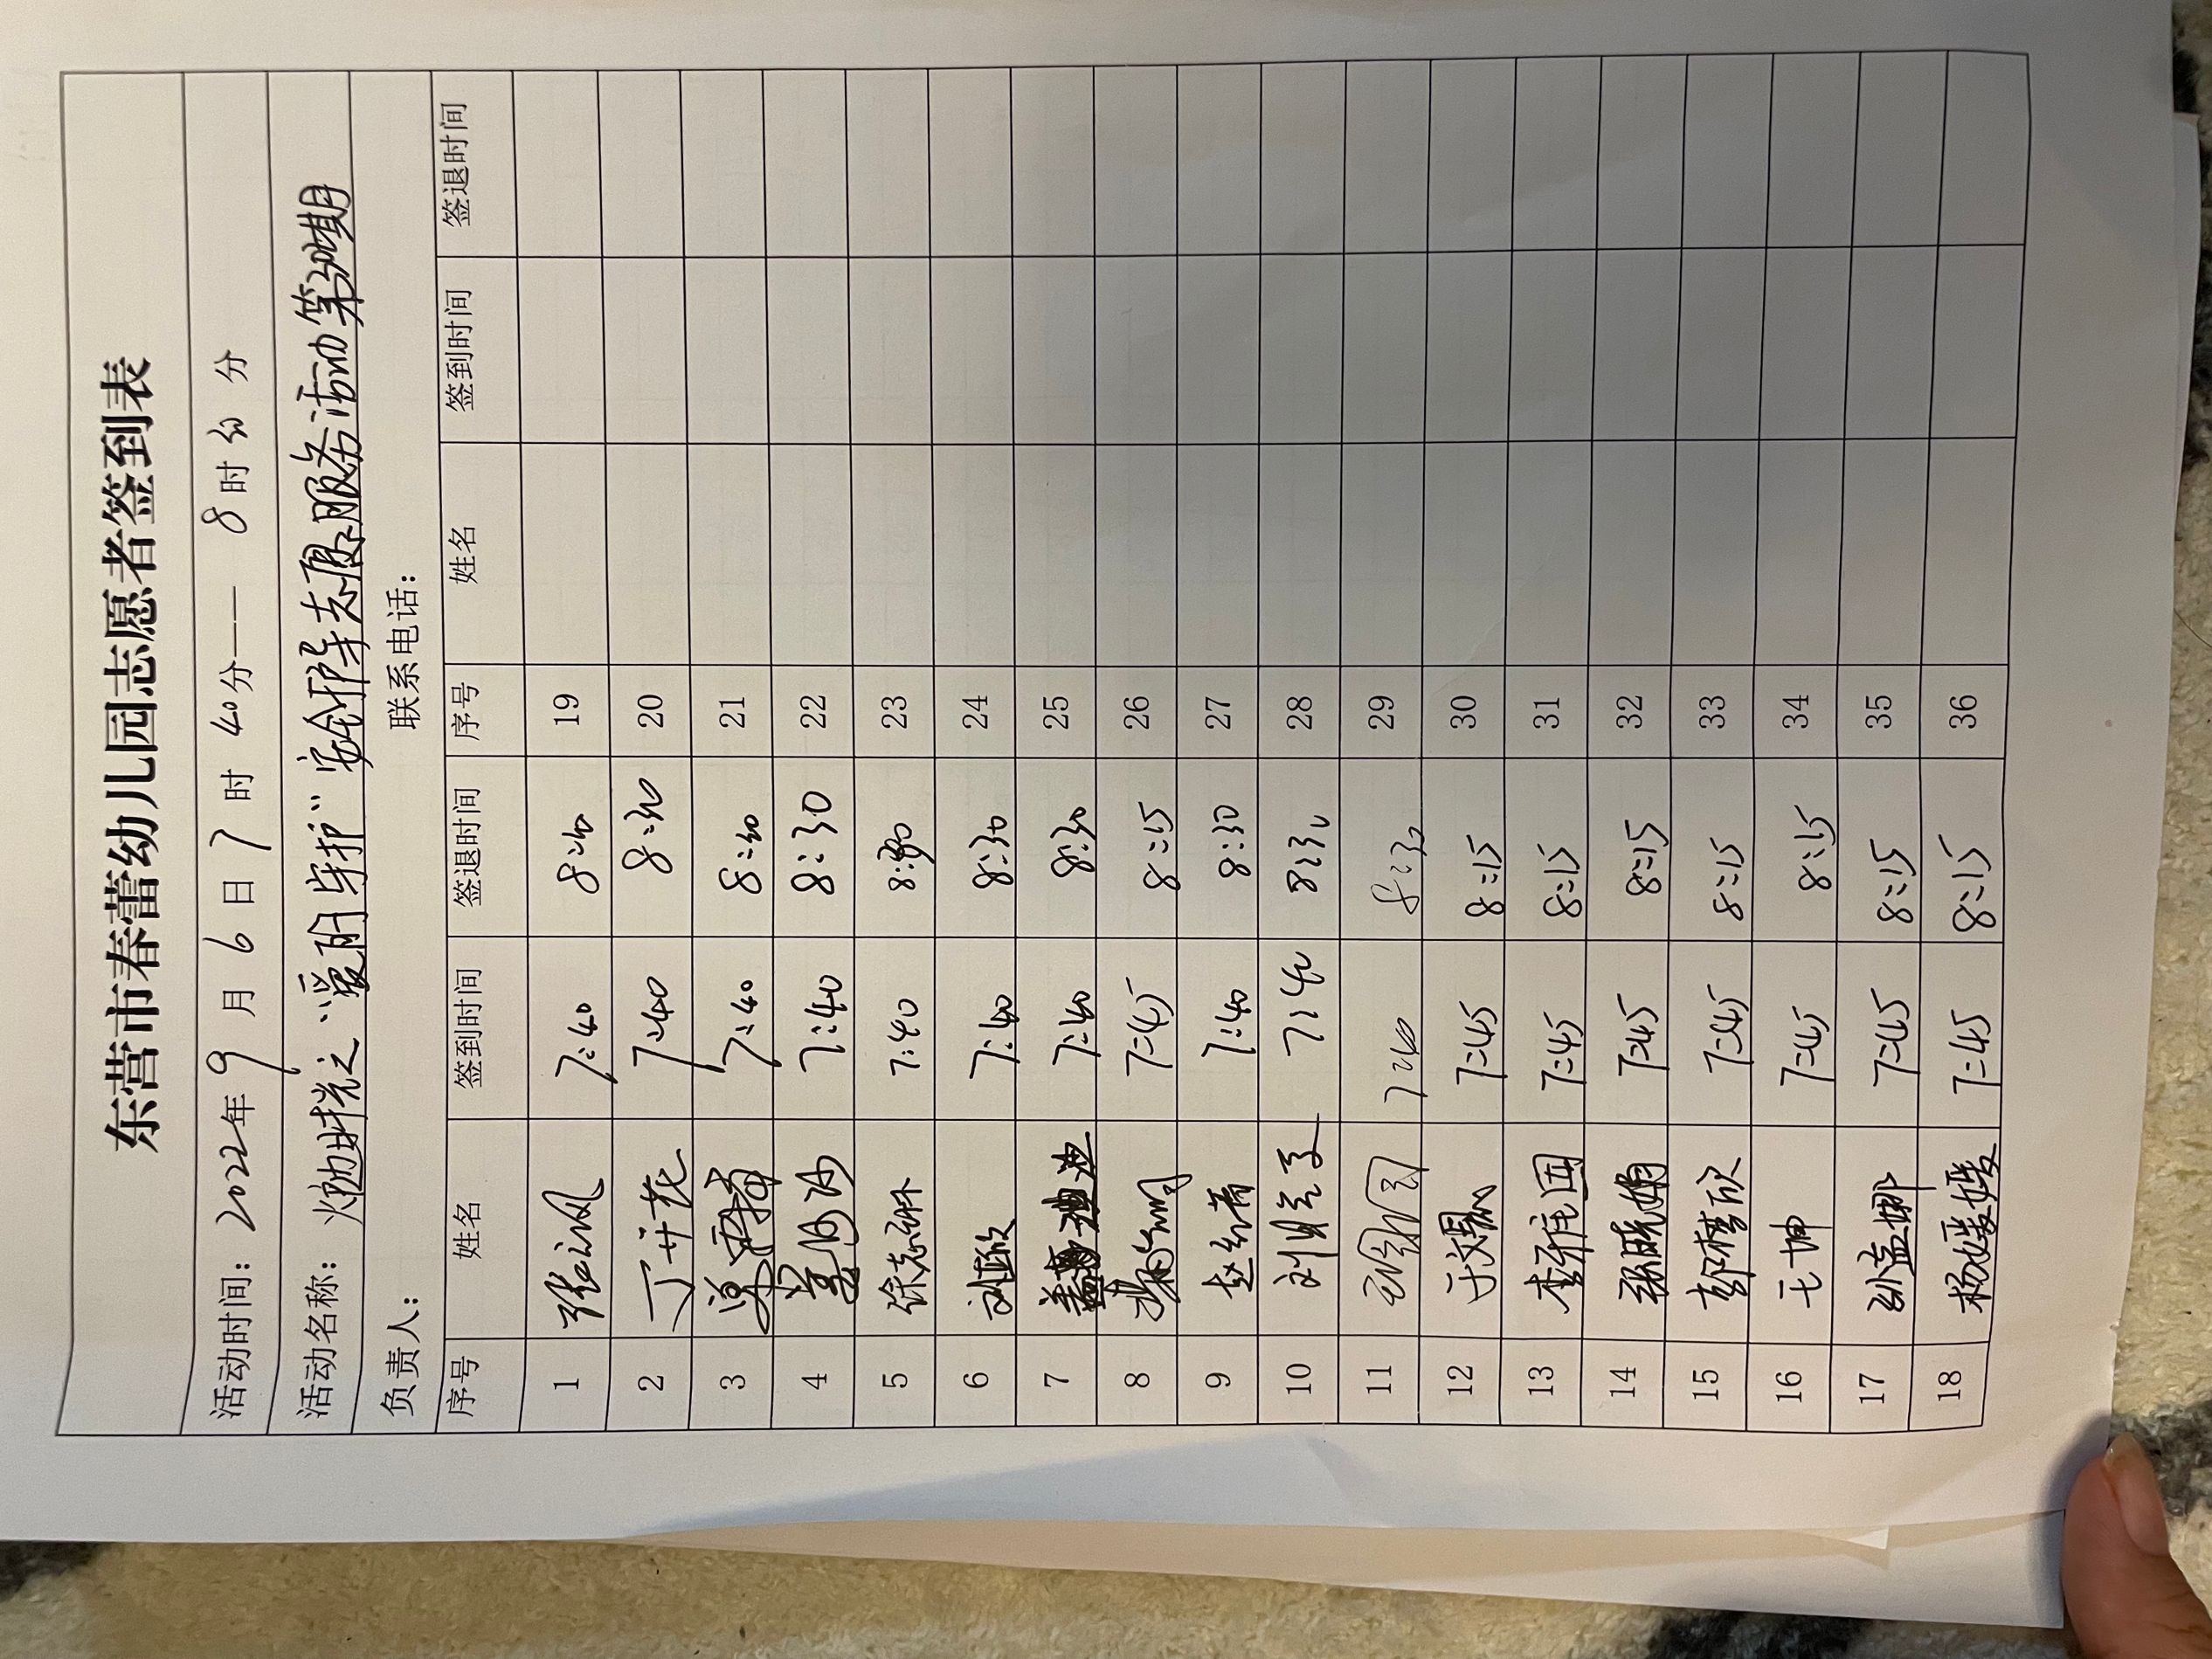 东营市春蕾幼儿园志愿者签到表
活动时间：2022年 9 月 6 日 7 时 40分—— 8 时 30 分
活动名称： 之“爱的守护”安全护导志愿服务活动第 期
负责人： 联系电话：
序号 姓名 签到时间 签退时间 序号 姓名 签到时间 签退时间
1 7:40 8:30 19
2 丁卉花 7:40 8:30 20
3 7:40 8:30 21
4 7:40 8:30 22
5 徐志琳 7:40 8:30 23
6 刘欣 7:40 8:30 24
7 7:40 8:30 25
8 7:45 8:15 26
9 赵红菁 7:40 8:30 27
10 7:40 8:30 28
11 7:40 8:30 29
12 于文 7:45 8:15 30
13 李雅囡 7:45 8:15 31
14 孙晓娟 7:45 8:15 32
15 欣 7:45 8:15 33
16 王坤 7:45 8:15 34
17 孙孟娜 7:45 8:15 35
18 杨媛媛 7:45 8:15 36